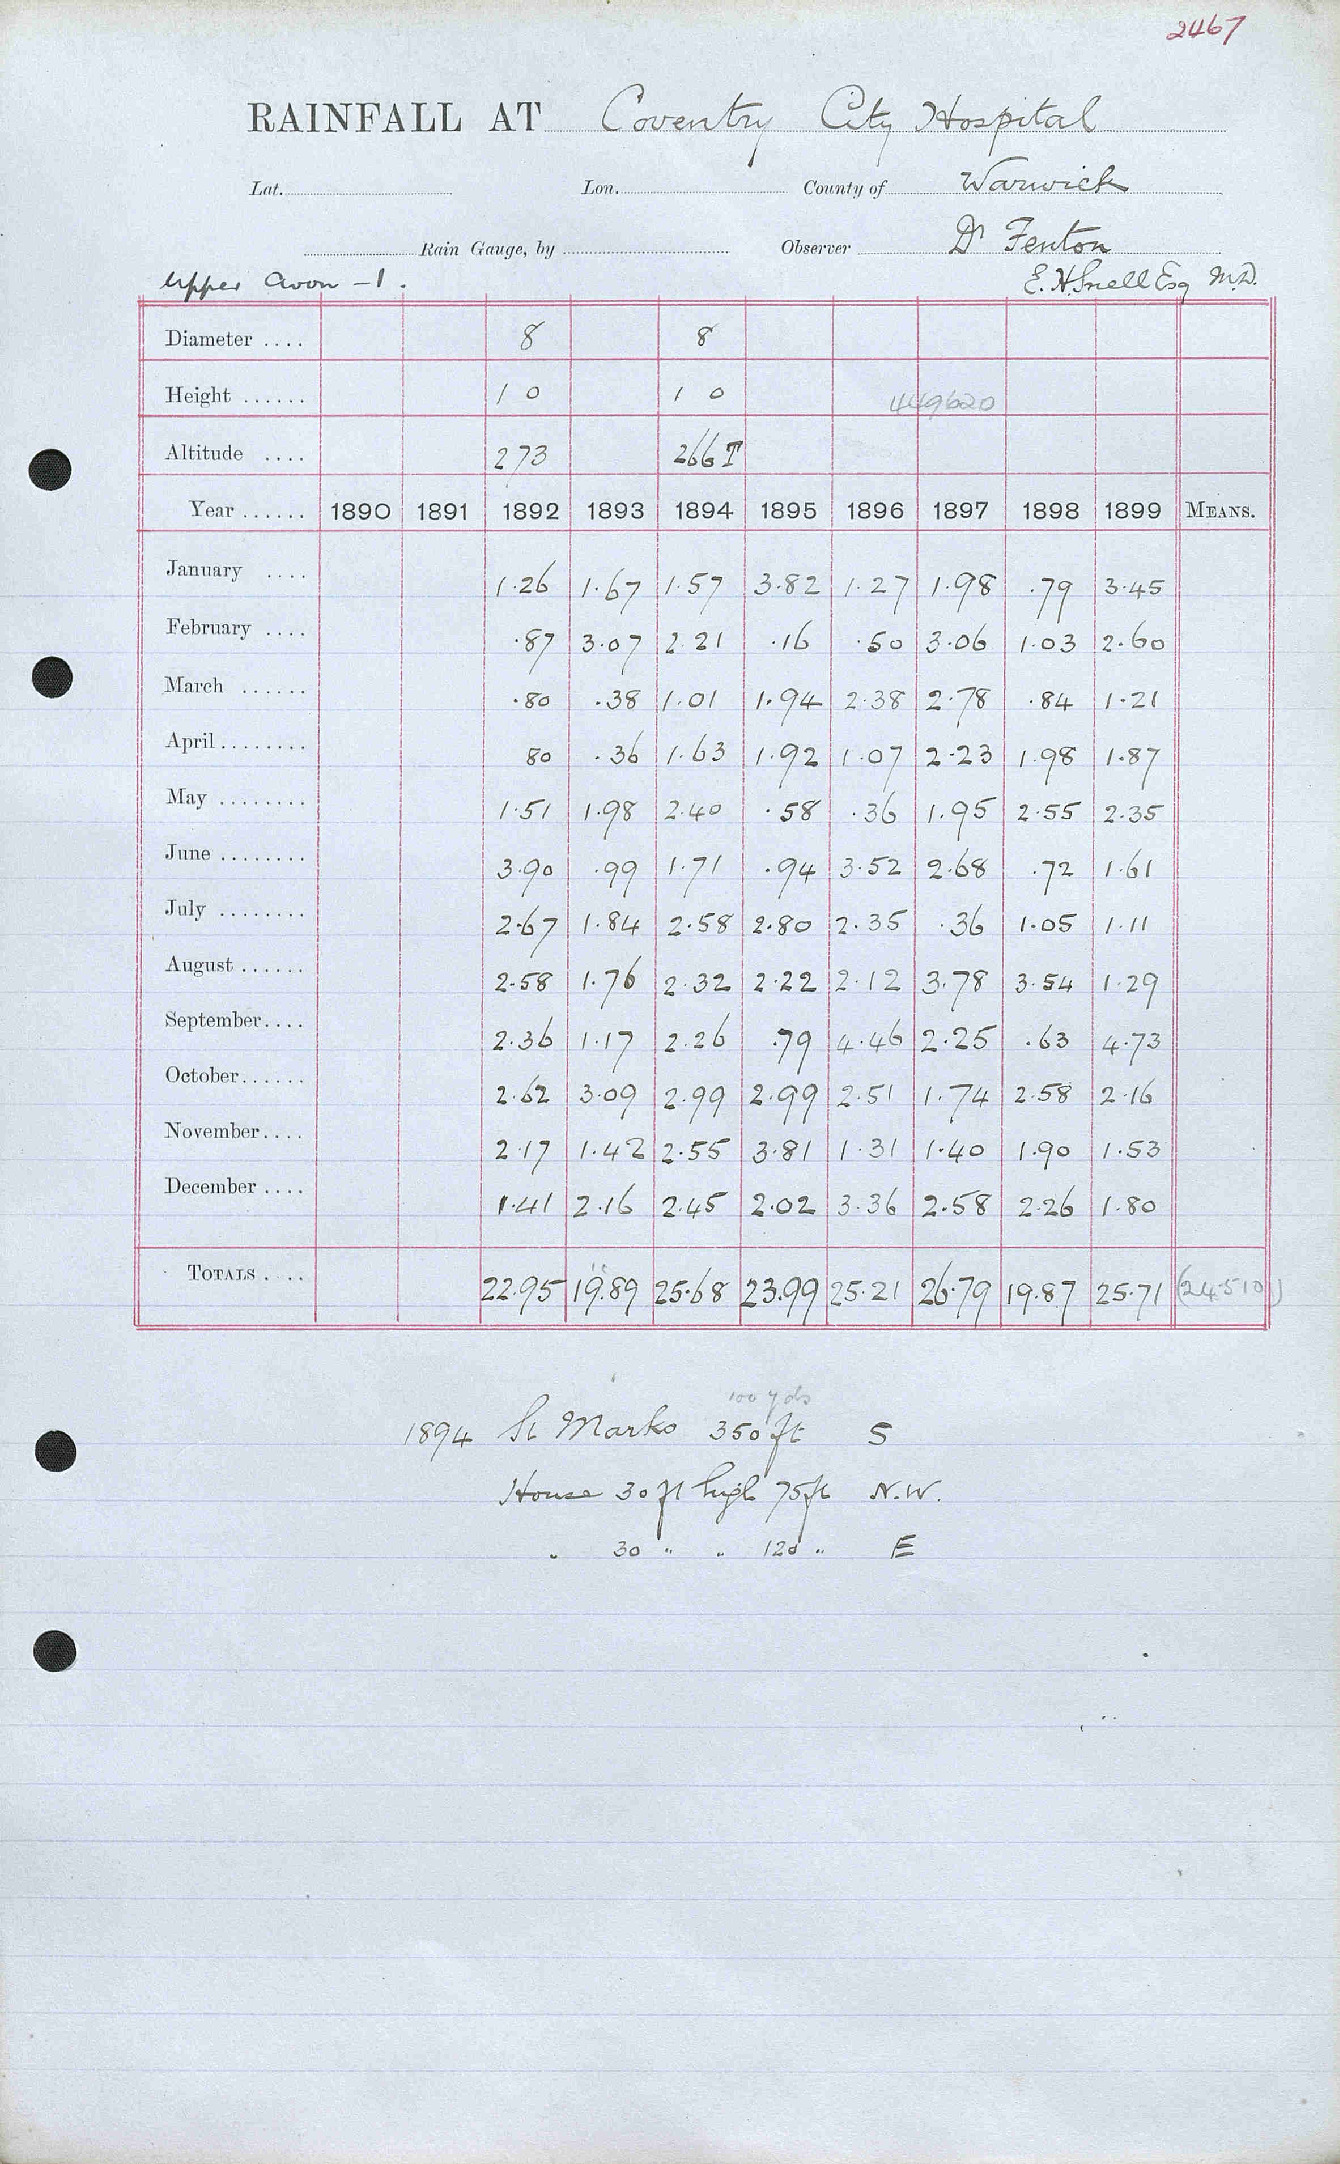 2467
RAINFALL AT Coventry City Hospital
Lat. Lon. County of Warwick
Rain Gauge, by Observer Dr Fenton
Upper Avon - 1. E. H. Snell Esq M.D.
Diameter .... 8 8
Height ...... 1 0 1 0 449620
Altitude .... 273 266 T
Year ...... 1890 1891 1892 1893 1894 1895 1896 1897 1898 1899 MEANS.
January .... 1.26 1.67 1.57 3.82 1.27 1.98 .79 3.45
February .... .87 3.07 2.21 .16 .50 3.06 1.03 2.60
March ...... .80 .38 1.01 1.94 2.38 2.78 .84 1.21
April ........ 80 .36 1.63 1.92 1.07 2.23 1.98 1.87
May ........ 1.51 1.98 2.40 .58 .36 1.95 2.55 2.35
June ........ 3.90 .99 1.71 .94 3.52 2.68 .72 1.61
July ........ 2.67 1.84 2.58 2.80 2.35 .36 1.05 1.11
August ...... 2.58 1.76 2.32 2.22 2.12 3.78 3.54 1.29
September.... 2.36 1.17 2.26 .79 4.46 2.25 .63 4.73
October...... 2.62 3.09 2.99 2.99 2.51 1.74 2.58 2.16
November.... 2.17 1.42 2.55 3.81 1.31 1.40 1.90 1.53
December .... 1.41 2.16 2.45 2.02 3.36 2.58 2.26 1.80
TOTALS .... 22.95 19.89 25.68 23.99 25.21 26.79 19.87 25.71 (24.510)
100 yds
1894 St Marks 350 ft S
House 30 ft high 75 ft N.W.
" 30 " " 120 " E